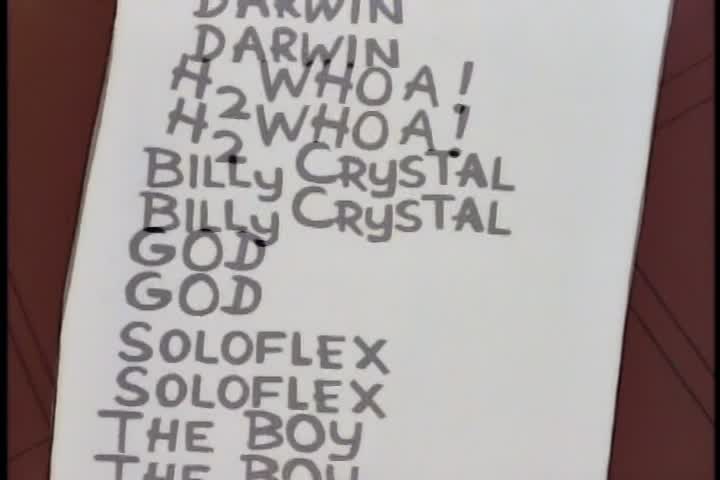 DARWIN
DARWIN
H2WHOA!
H2WHOA!
BILLy CRySTAL
BILLy CRySTAL
GOD
GOD
SOLOFLEX
SOLOFLEX
THE BOy
THE BOy